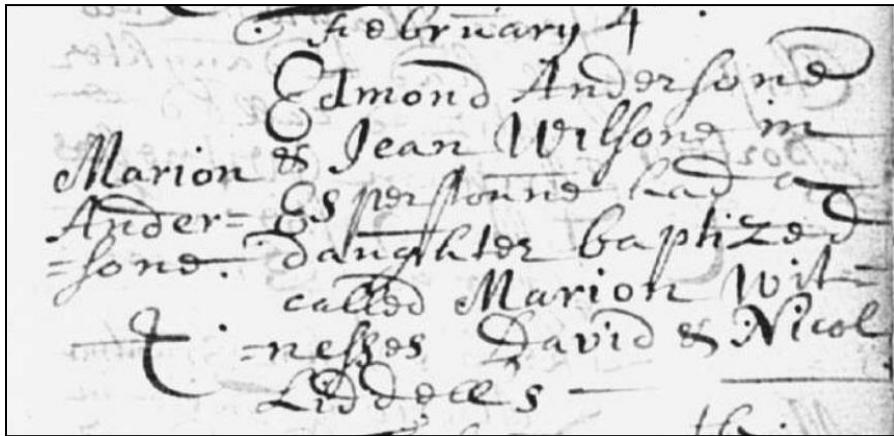 February 4
Edmond Andersone
& Jean Wilsone in
Espertoune had a
daughter baptized
called Marion Wit=
=nesses David & Nicol
Liddells
Marion
Ander=
=sone.